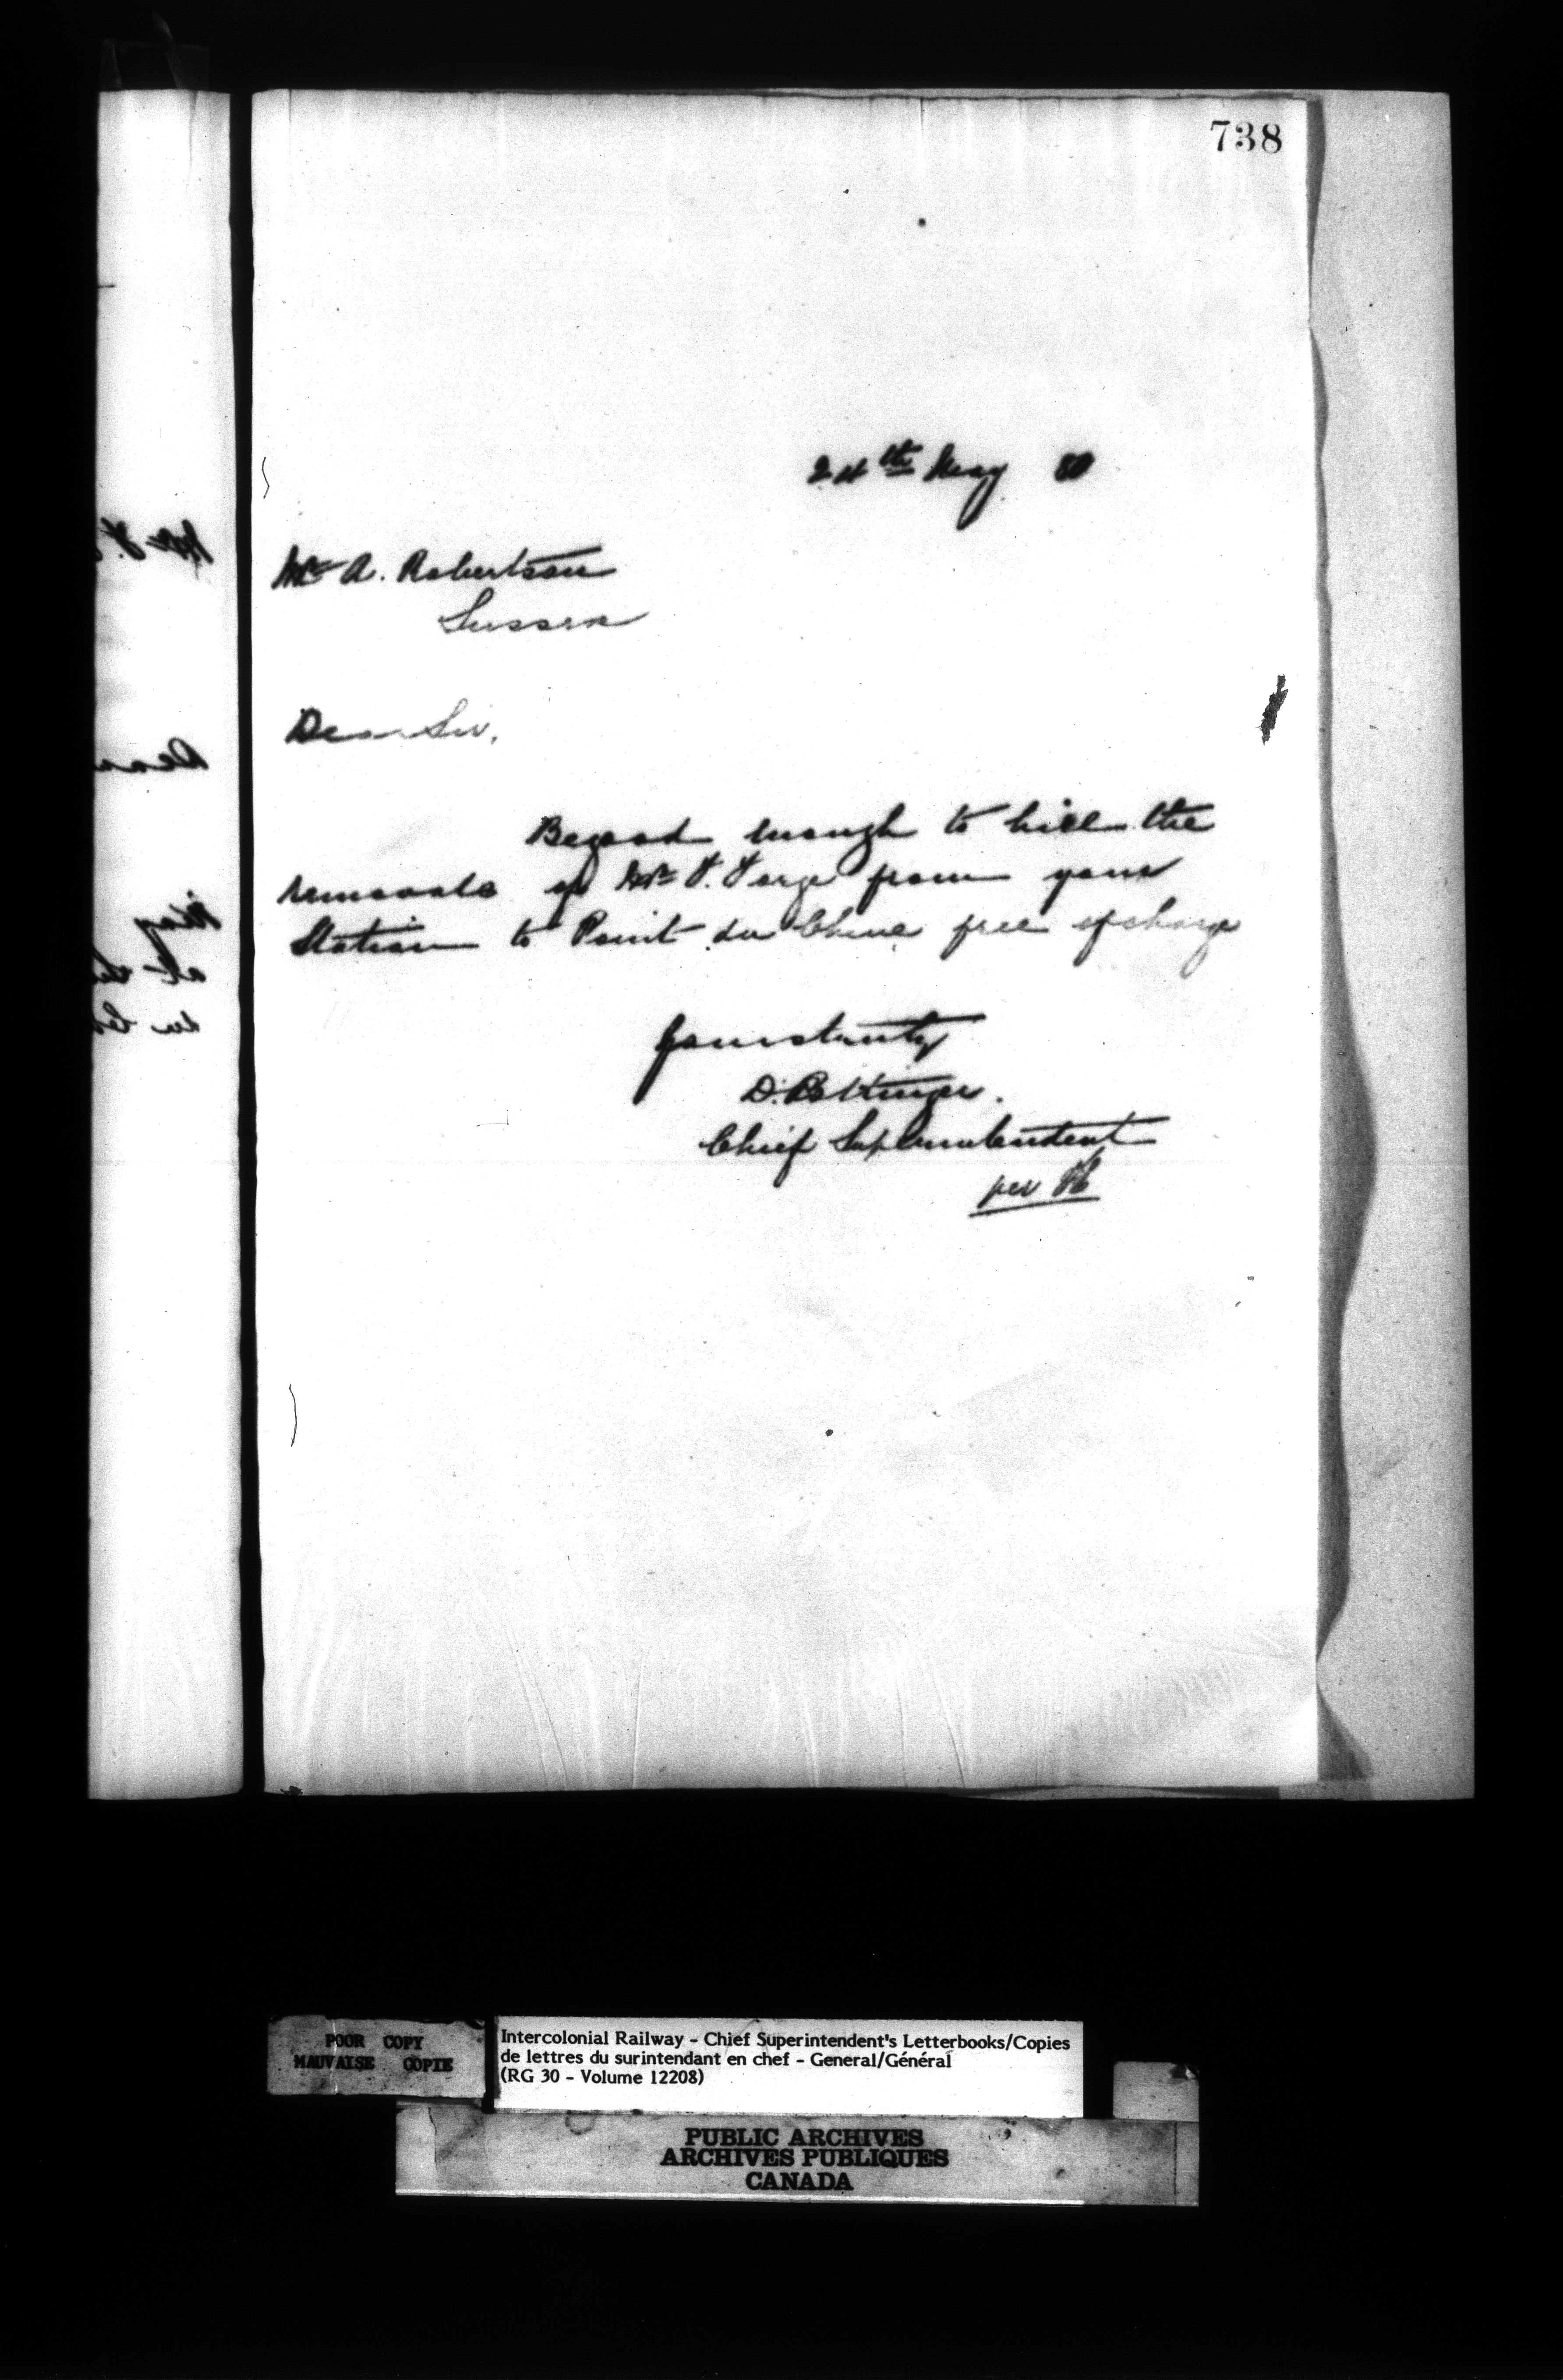 738
24th May 80
Mr A. Robertson
Sussex
Dear Sir,
Be good enough to bill the
removals of Mr F. from your
Station to Point du Chene free of charge
Yours truly
D. Pottinger.
Chief Superintendent
per
POOR COPY
MAUVAISE COPIE
Intercolonial Railway - Chief Superintendent's Letterbooks/Copies
de lettres du surintendant en chef - General/Général
(RG 30 - Volume 12208)
PUBLIC ARCHIVES
ARCHIVES PUBLIQUES
CANADA